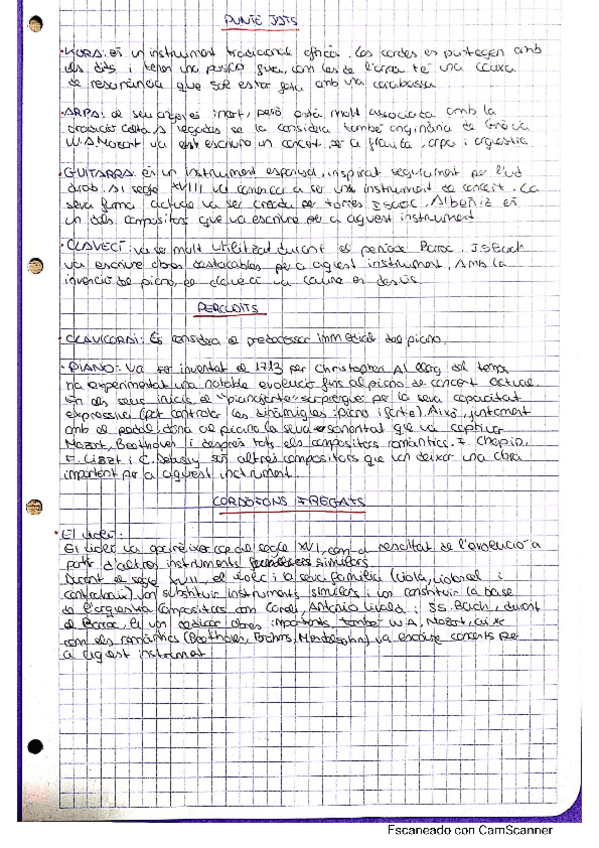 PUNTEJATS
·KORA: és un instrument tradicional africà. Les cordes es puntegen amb
els dits i tenen una posició fixa, com les de l'arpa té una caixa
de ressonància que sol estar feta amb una carabassa
·ARPA: el seu origen és incert, però està molt associada amb la
tradició celta. A vegades se la considera també originària de Grècia
W.A.Mozart va escriure un concert per a flauta, arpa i orquestra
·GUITARRA: és un instrument espanyol, inspirat segurament per l'ud
àrab. Al segle XVIII va començar a ser un instrument de concert. La
seva forma actual va ser creada per Torres Isaac, Albéniz és
un dels compositors que va escriure per a aquest instrument
·CLAVECÍ: va ser molt utilitzat durant el període Barroc. J.S.Bach
va escriure obres destacables per a aquest instrument. Amb la
invenció del piano, el clavecí va caure en desús.
PERCUDITS
·CLAVICORDI: Es considera el predecessor immediat del piano.
·PIANO: Va ser inventat el 1713 per Christophori. Al llarg del temps
ha experimentat una notable evolució fins al piano de concert actual.
En els seus inicis, el "pianoforte" sorprengué per la seva capacitat
expressiva (pot controlar les dinàmiques: piano i forte). Això, juntament
amb el pedal, dona al piano la seva sonoritat que va captivar
Mozart, Beethoven i després tots els compositors romàntics. F. Chopin,
F. Liszt i C. Debussy són altres compositors que van deixar una obra
important per a aquest instrument.
CORDÒFONS FREGATS
·El violí:
El violí va aparèixer cap del segle XVI, com a resultat de l'evolució a
partir d'altres instruments similars
Durant el segle XVII, el violí i la seva família (viola, violoncel i
contrabaix) van substituir instruments similars i van constituir la base
de l'orquestra Compositors com Corelli, Antonio Vivaldi i J.S. Bach, durant
el Barroc, li van dedicar obres importants també W.A. Mozart, així
com els romàntics (Beethoven, Brahms, Mendelssohn) va escriure concerts per
a aquest instrument
Escaneado con CamScanner